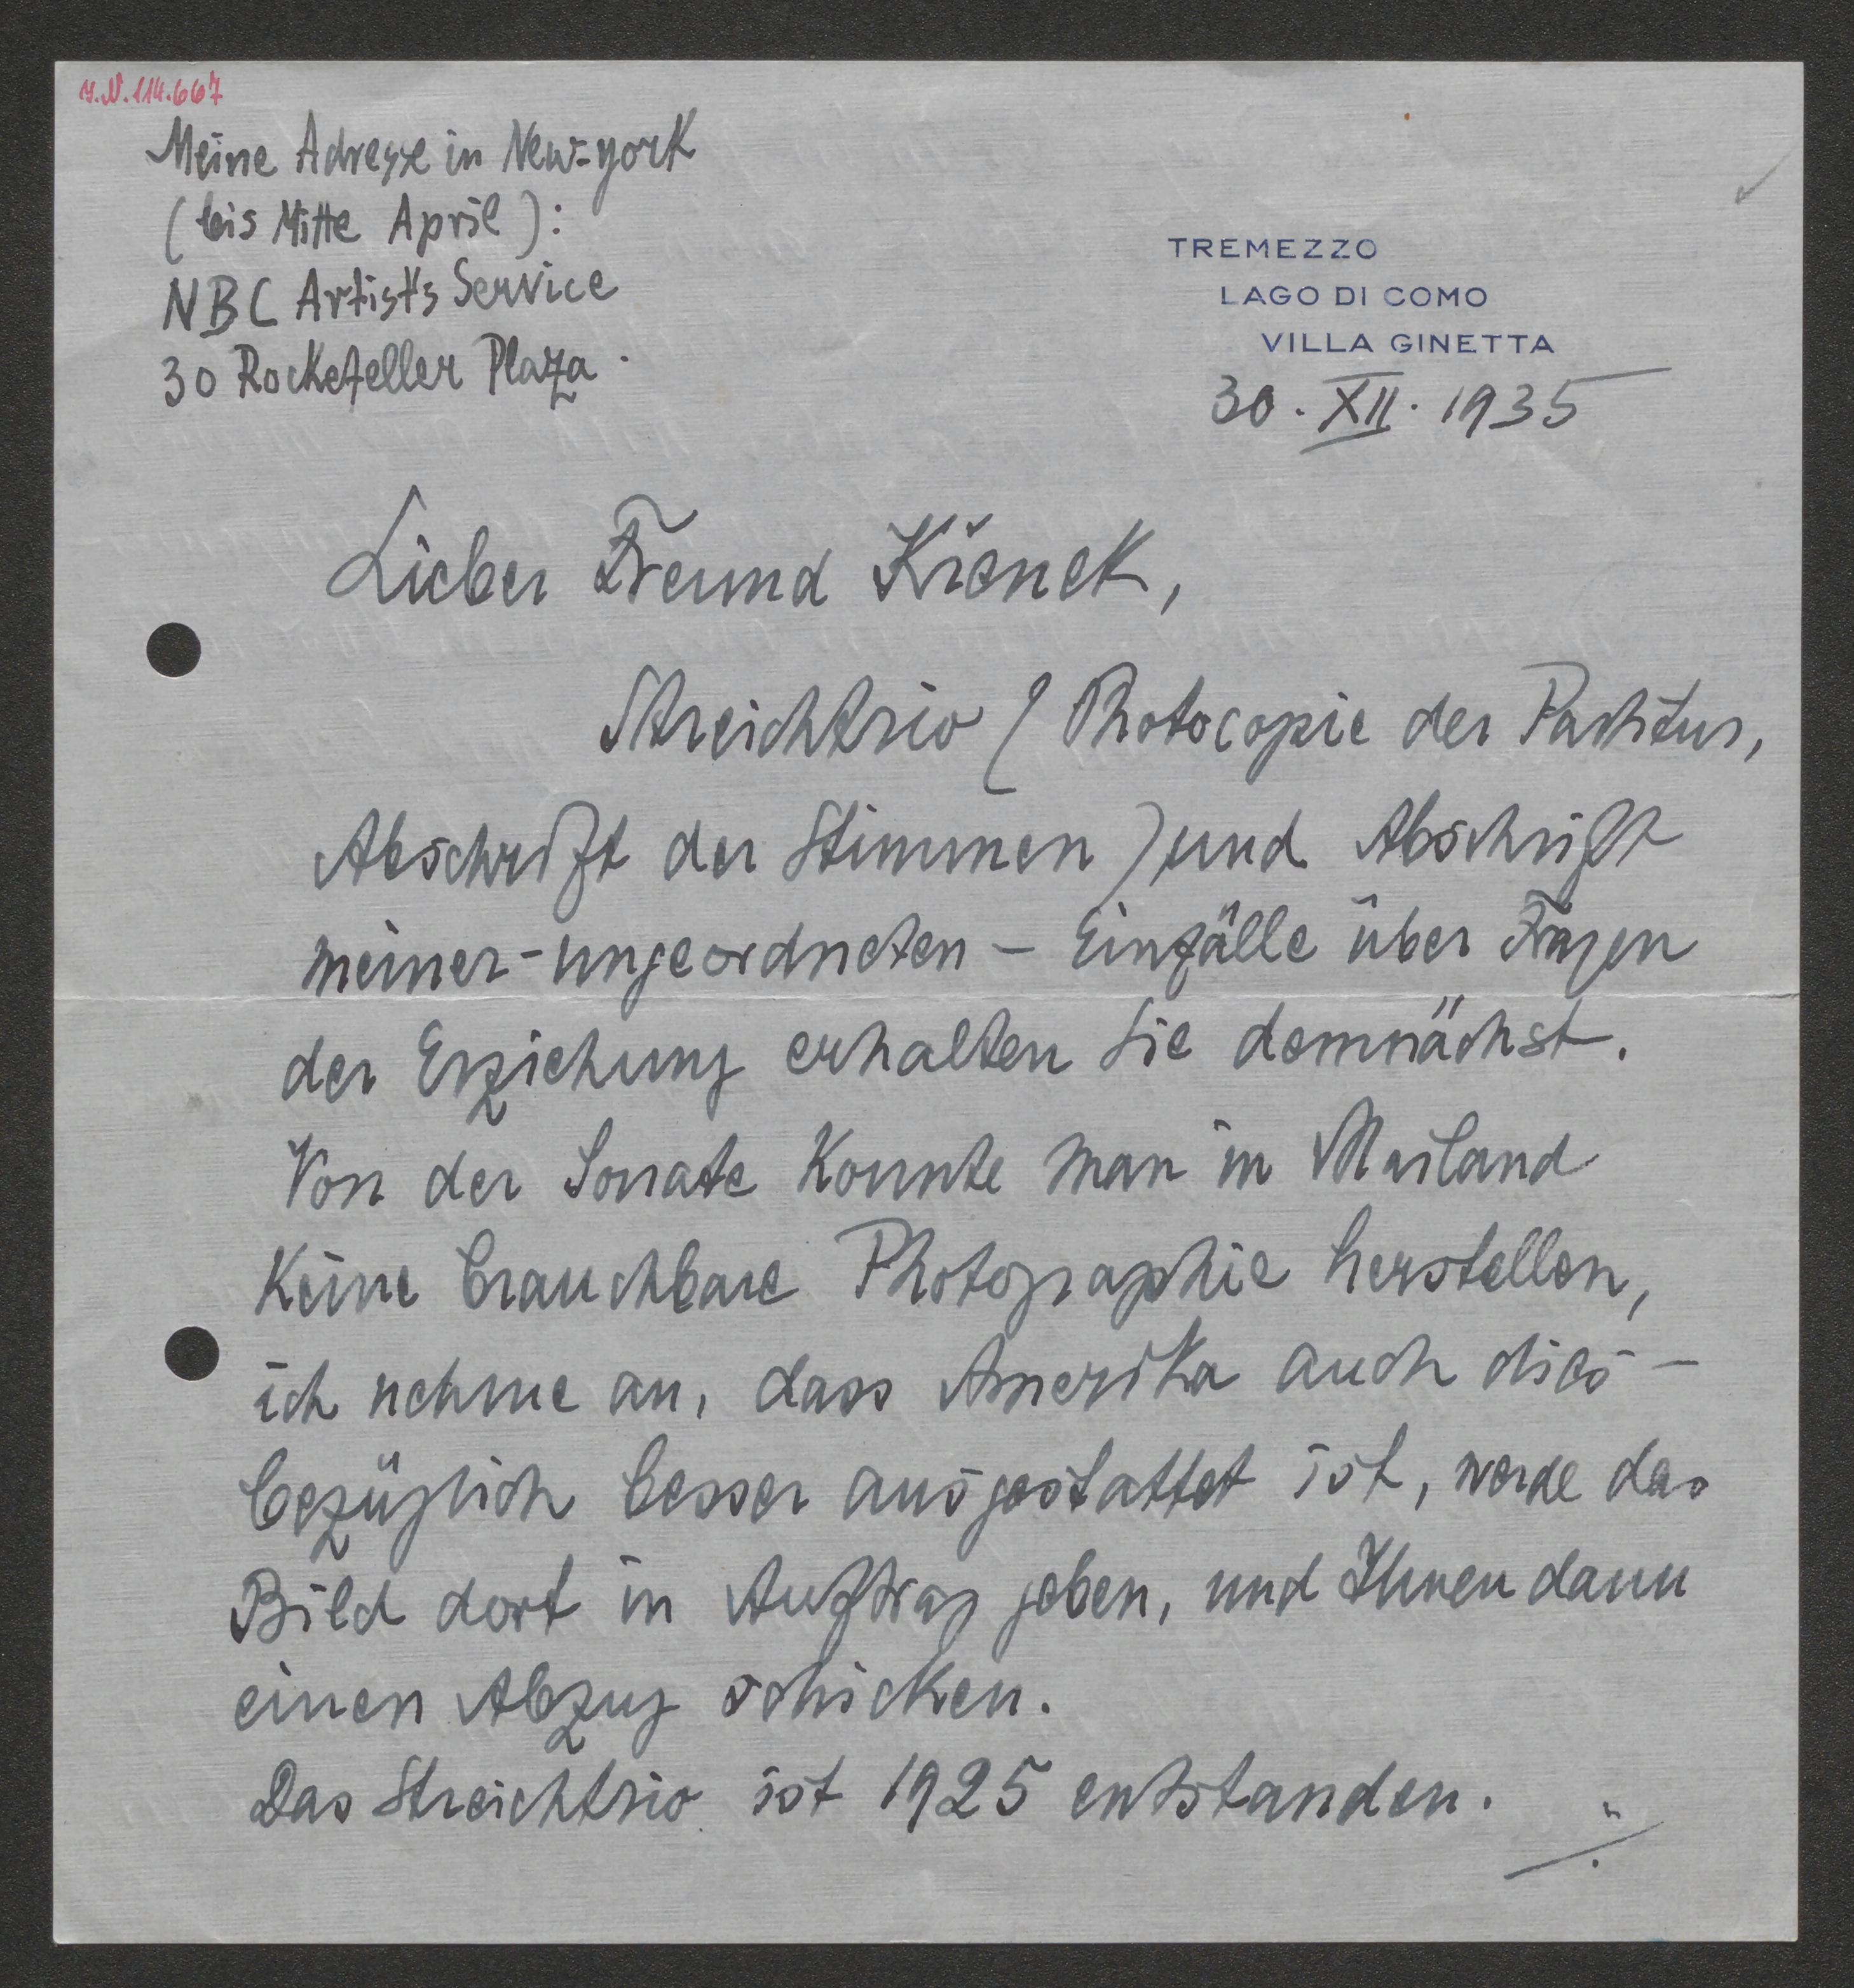 I.N. 114.667
Meine Adresse in New-york
(bis Mitte April):
NBC Artist's Service
30 Rockefeller Plaza.
TREMEZZO
LAGO DI COMO
VILLA GINETTA
30. XII. 1935
Lieber Freund Křenek,
Streichtrio (Photocopie der Partitur,
Abschrift der Stimmen) und Abschrift
meiner - ungeordneten - Einfälle über Fragen
der Erziehung erhalten Sie demnächst.
Von der Sonate konnte man in Mailand
keine brauchbare Photographie herstellen,
ich nehme an, dass Amerika auch dies-
bezüglich besser ausgestattet ist, werde das
Bild dort in Auftrag geben, und Ihnen dann
einen Abzug schicken.
Das Streichtrio ist 1925 entstanden. ./.